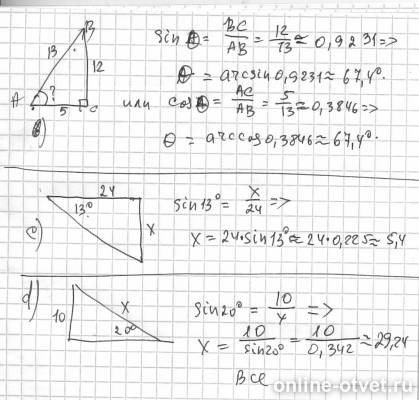 B
sin θ = BC/AB = 12/13 ≈ 0,9231 =>
13
12
θ = arcsin 0,9231 ≈ 67,4°.
A ? C
5
или cos θ = AC/AB = 5/13 ≈ 0,3846 =>
θ = arccos 0,3846 ≈ 67,4°.
24
13°
sin 13° = x/24 =>
x
c)
x = 24·sin 13° ≈ 24·0,225 ≈ 5,4
d)
x
sin 20° = 10/x =>
10
20°
x = 10/sin 20° = 10/0,342 ≈ 29,24
все
online-otvet.ru